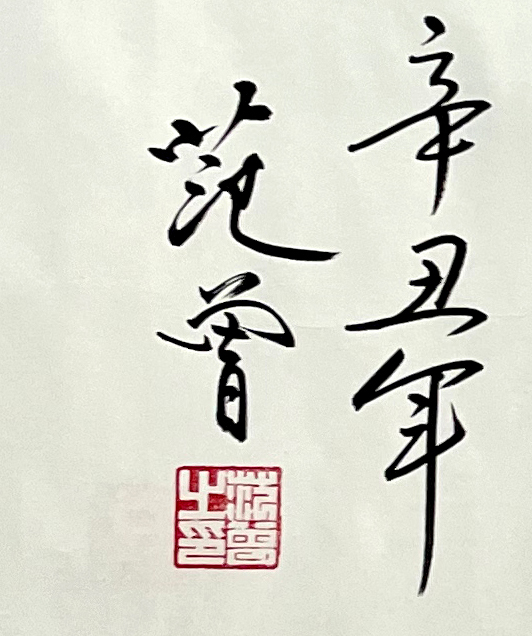 辛丑年
范曾